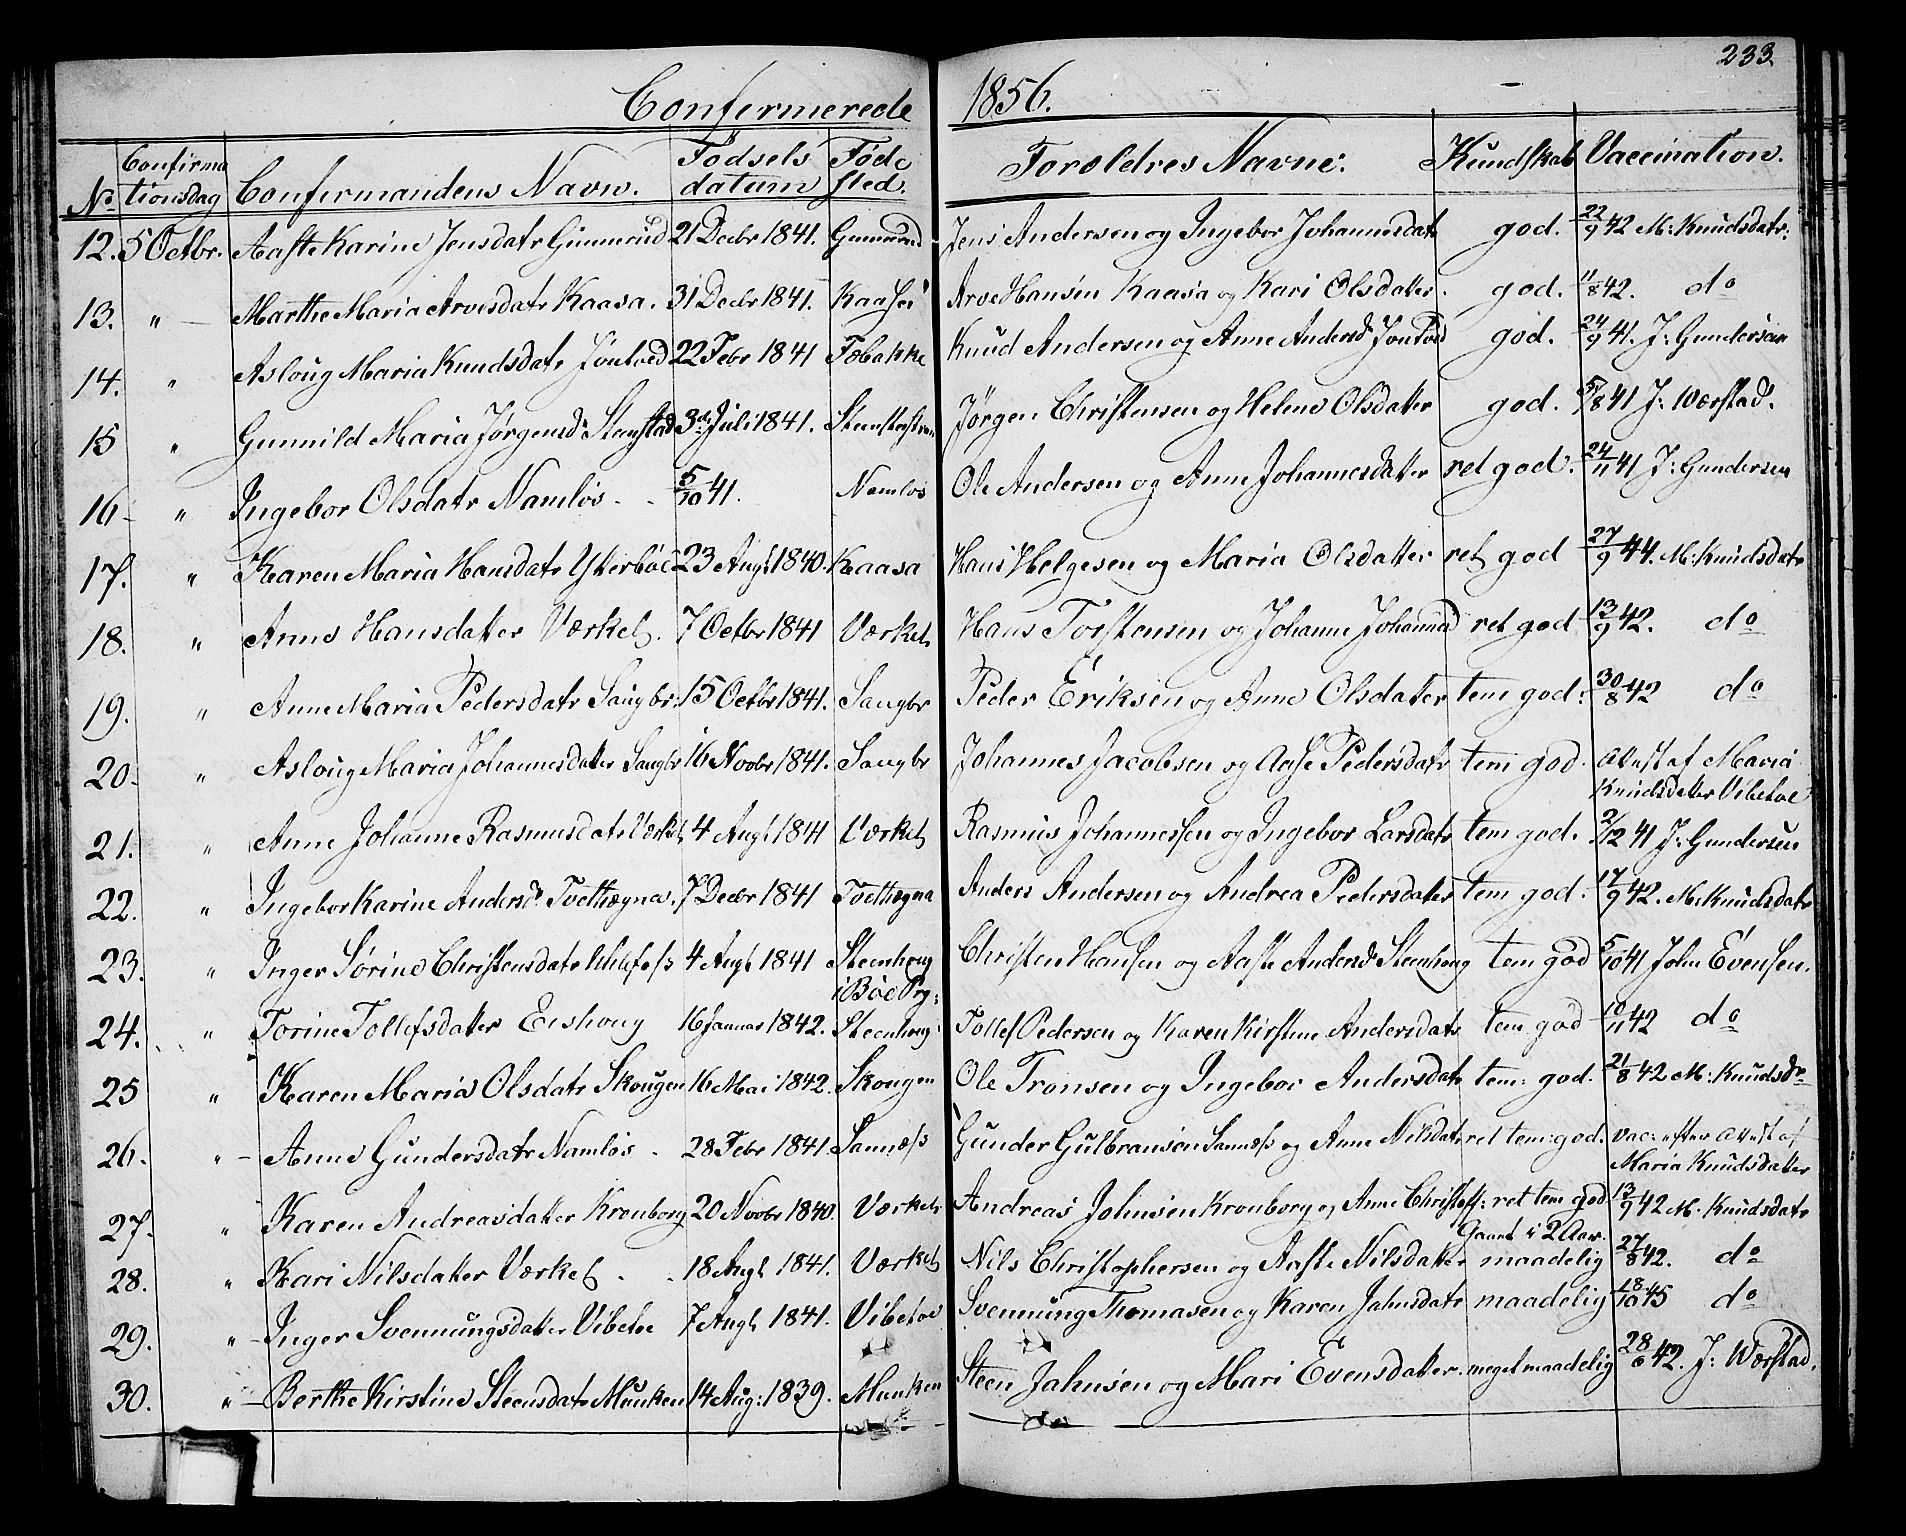 233.
Confermerede 1856.
No Confirmationsdag Confermandens Navn. Födsels datum Föde sted. Foroldres Navne: Kundskab Vaccination.
12. 5 Octbr. Aaste Karine Jensdatr Gunnerud 21 Decbr 1841. Gunnerud Jens Andersen og Ingebor Johannesdatr god. 22/9 42 M: Knudsdatr:
13. " Marthe Maria Arvesdatr Kaasa. 31 Decbr 1841. Arve Hansen Kaasa og Kari Olsdatter. god. 11/8 42. do
14. " Asloug Maria Knudsdatr 22 Febr 1841 Fæbakke Knud Andersen og Anne Andersd. god. 24/9 41. J: Gundersen
15 " Gunnild Maria Jørgensd. 3die Juli 1841. Jørgen Christensen og Helene Olsdatter god. 5/8 41 J: Wærstad.
16 - " Ingebor Olsdatr Namløs - 5/10 41. Namløs Ole Andersen og Anne Johannesdatter ret god. 24/11 41 J: Gundersen
17. " Karen Maria Hansdatr Ytterböe 23 Augt 1840. Kaasa Hans Helgesen og Maria Olsdatter ret god 27/9 44. M: Knudsdatr
18. " Anne Hansdatter Værket. 7 Octbr 1841 Værket Hans Torstensen og Johanne Johannesd ret god 13/9 42. do
19. " Anne Maria Pedersdatr Saugbr. 15 Octbr 1841. Saugbr Peder Eriksen og Anne Olsdatter tem god. 30/8 42 do
20 - " Asloug Maria Johannesdatter Saugbr 16 Novbr 1841. Saugbr Johannes Jacobsen og Aase Pedersdatr tem god. Attest af Maria
Knudsdatter Vibetoe
21. " Anne Johanne Rasmusdatr Værket 4 Augt 1841 Værket Rasmus Johannessen og Ingebor Larsdatr tem god. 2/12 41 J: Gundersen
22. " Ingebor Karine Andersd. Tvethægna. 7 Decbr 1841 Tvethægna Anders Andersen og Andrea Pedersdatter tem god. 17/9 42. M: Knudsdatr
23. " Inger Sørine Christensdatr Ulefoss 4 Augt 1841 Steenhoug i Böe Prg: Christen Hansen og Aaste Andersd. Steenhoug tem god 5/10 41 John Evensen.
24. " Torine Tollefsdatter 16 Januar 1842. Steenhoug Tollef Pedersen og Karen Kirstine Andersdatr tem god 10/11 42 do
25 " Karen Maria Olsdatr Skougen 16 Mai 1842. Skougen Ole Tronsen og Ingebor Andersdatr tem: god. 21/8 42 M: Knudsdr
26. " - Anne Gundersdatr Namløs. 28 Febr 1841. Sannæss Gunder Gulbransen Sannæss og Anne Nilsdatr ret tem: god. vac: efter Attest af
Maria Knudsdatter
27. " Karen Andreasdatter Kronborg 20 Novbr 1840. Værket Andreas Johnsen Kronborg og Anne ret tem god 13/9 42 M. Knudsdatr
Gaaet i 2 Aar.
28. " Kari Nilsdatter Værket. 18 Augt 1841. Værket Nils Christophersen og Aaste Nilsdatter maadelig 27/8 42. do
29. " - Inger Svennungsdatter Vibetoe 7 Augt 1841. Vibetoe Svennung Thomasen og Karen Jahnsdatr maadelig 18/10 45 do
30. " - Berthe Kirstine Steensdatr Munken 14 Aug: 1839. Munken Steen Jahnsen og Mari Evensdatter. meget maadelig 28/6 42. J: Wærstad.